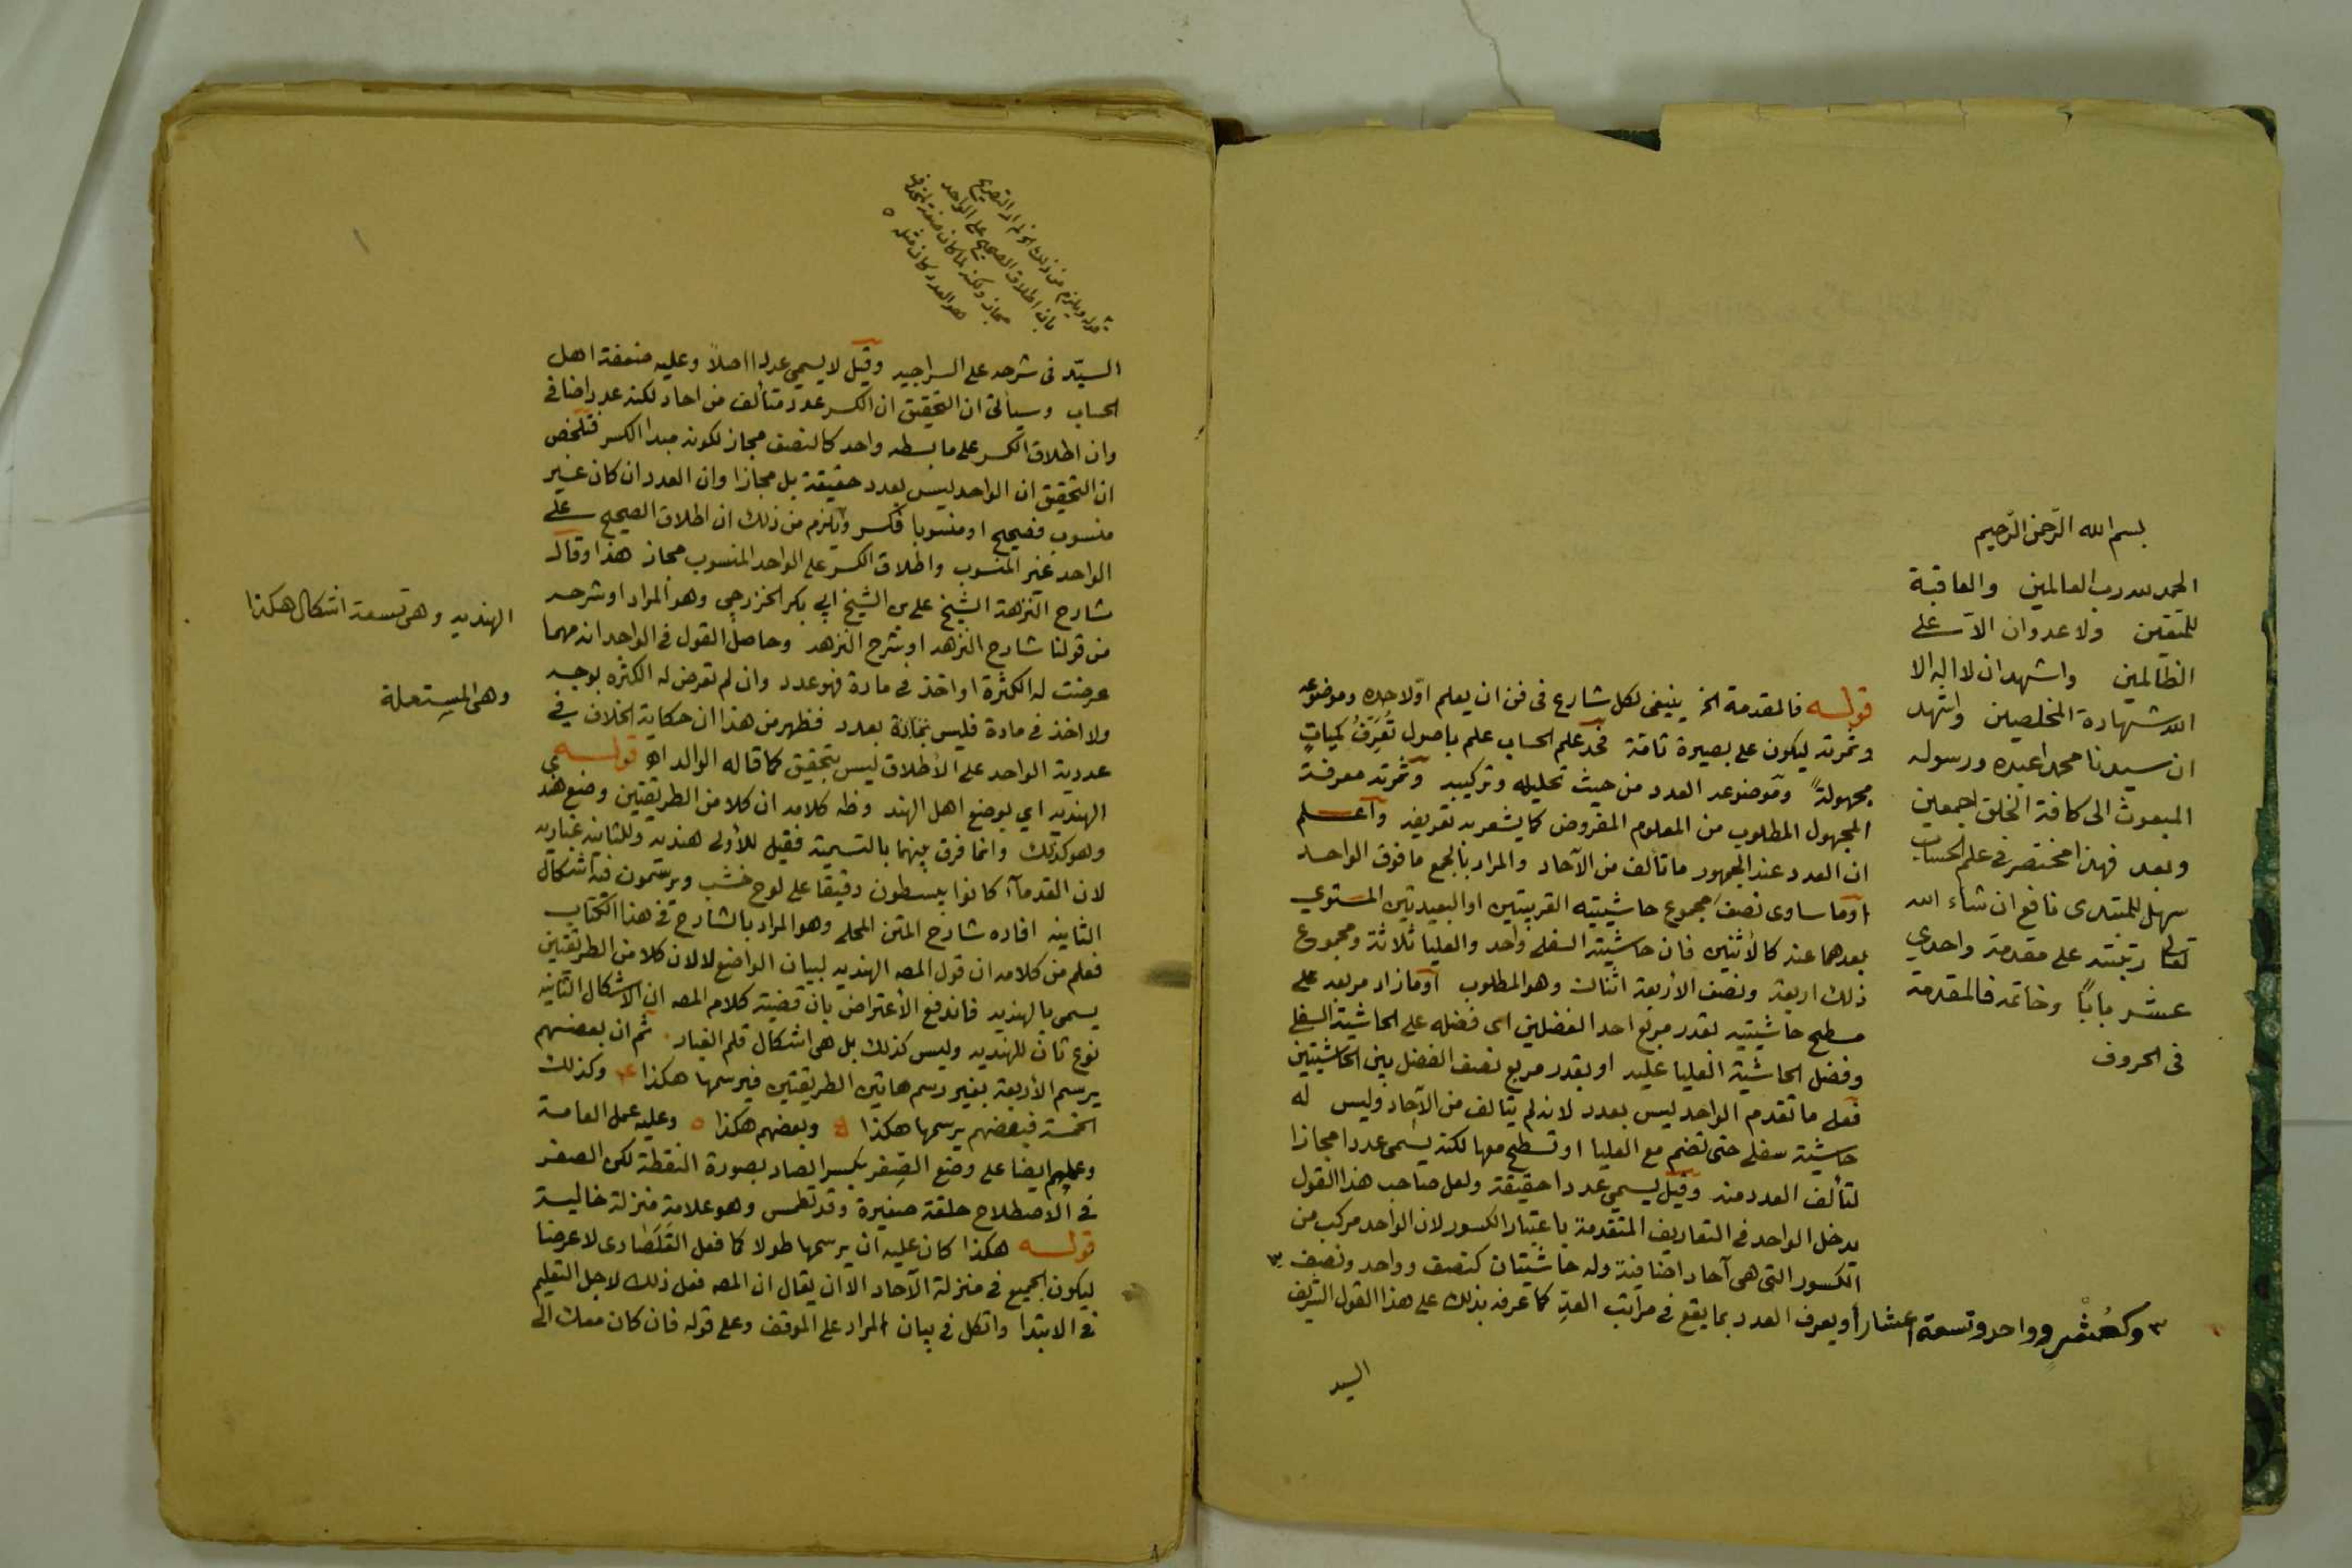 بسم الله الرحمن الرحيم
الحمد لله رب العالمين والعاقبة
للمتقين ولا عدوان الا على
الظالمين واشهد ان لا اله الا
الله شهادة المخلصين واشهد
ان سيدنا محمدا عبده ورسوله
المبعوث الى كافة الخلق اجمعين
وبعد فهذا مختصر في علم الحساب
سهل للمبتدى نافع ان شاء الله
تعالى رتبته على مقدمة واحدي
عشر بابًا وخاتمه فالمقدمة
في الحروف
قوله فالمقدمة الخ ينبغى لكل شارع في فن ان يعلم اولا حده وموضوعه
وثمرته ليكون على بصيرة تامة فحد علم الحساب علم باصول تعرف كميات
مجهولة وموضوعه العدد من حيث تحليله وتركيبه وثمرته معرفة
المجهول المطلوب من المعلوم المفروض كما يشعر به تعريفه واعلم
ان العدد عند الجمهور ما تألف من الآحاد والمراد بالجمع ما فوق الواحد
او ما ساوى نصف مجموع حاشيتيه القريبتين او البعيدتين المستوي
بعدهما عنه كالاثنين فان حاشيته السفلى واحد والعليا ثلاثة ومجموع
ذلك اربعة ونصف الأربعة اثنان وهو المطلوب او ما زاد مربعه على
مسطح حاشيتيه بقدر مربع احد الفضلين اى فضله على الحاشية السفلى
وفضل الحاشية العليا عليه او بقدر مربع نصف الفضل بين الحاشيتين
فعلى ما تقدم الواحد ليس بعدد لانه لم يتالف من الآحاد وليس له
حاشية سفلى حتى تضم مع العليا او تسطح معها لكنه يسمى عددا مجازا
لتألف العدد منه وقيل يسمي عددا حقيقة ولعل صاحب هذا القول
يدخل الواحد في التعاريف المتقدمة باعتبار الكسور لان الواحد مركب من
الكسور التى هى آحاد اضافية وله حاشيتان كنصف وواحد ونصف ٣
او يعرف العدد بما يقع في مراتب العدّ كما عرفه بذلك على هذا القول الشريف
٣ وكعُشْرٍ وواحد وتسعة اعشار
السيد
قوله ويلزم من ذلك
بان اطلاق الصحيح على الواحد
هو العدد كان مثله
السيّد في شرحه على السراجيه وقيل لا يسمي عددا اصلاً وعليه اهل
الحساب وسيأتى ان التحقيق ان الكسر عدد متألف من احاد لكنه عدد اضافي
وان اطلاق الكسر على ما بسطه واحد كالنصف مجاز لكونه مبدا الكسر فتلخص
ان التحقيق ان الواحد ليس بعدد حقيقة بل مجازا وان العدد ان كان غير
منسوب فصحيح او منسوبا فكسر ويلزم من ذلك ان اطلاق الصحيح على
الواحد غير المنسوب واطلاق الكسر على الواحد المنسوب مجاز هذا وقال
شارح النزهة الشيخ على بن الشيخ ابي بكر الخزرجي وهو المراد او شرحه
من قولنا شارح النزهه او شرح النزهه وحاصل القول في الواحد انه مهما
عرضت له الكثرة او اخذ في مادة فهو عدد وان لم تعرض له الكثره بوجه
ولا اخذ في مادة فليس بعدد فظهر من هذا ان حكاية الخلاف في
عددية الواحد على الأطلاق ليس بتحقيق كما قاله الوالد اهـ قوله
الهنديه اي بوضع اهل الهند وظ كلامه ان كلا من الطريقتين وضع هند
وهو كذلك وانما فرق بينهما بالتسمية فقيل للأولى هنديه وللثانيه غباريه
لان القدمآء كانوا يبسطون دقيقا على لوح خشب ويرسمون فيه اشكال
الثانيه افاده شارح المتن المحلي وهو المراد بالشارح في هذا الكتاب
فعلم من كلامه ان قول المصـ الهنديه لبيان الواضع لا لان كلا من الطريقتين
يسمى بالهنديه فاندفع الأعتراض بان قضية كلام المصـ ان الاشكال الثانيه
نوع ثان للهنديه وليس كذلك بل هى اشكال قلم الغبار ثم ان بعضهم
يرسم الأربعة بغير رسم هاتين الطريقتين فيرسمها هكذا وكذلك
الخمسة فبعضهم يرسمها هكذا وبعضهم هكذا وعليه عمل العامة
وعملهم ايضا على وضع الصِفر بكسر الصاد بصورة النقطة لكن الصفر
في الأصطلاح حلقة صغيرة وقد تطمس وهو علامة منزلة خالية
قوله هكذا كان عليه ان يرسمها طولا كما فعل القلَصَادى لا عرضا
ليكون الجميع في منزلة الآحاد الا ان يقال ان المصـ فعل ذلك لاجل التعليم
في الابتدا واتكل في بيان المراد على الموقف وعلى قوله فان كان معك الى
الهنديه وهى تسعة اشكال هكذا
وهى المستعملة